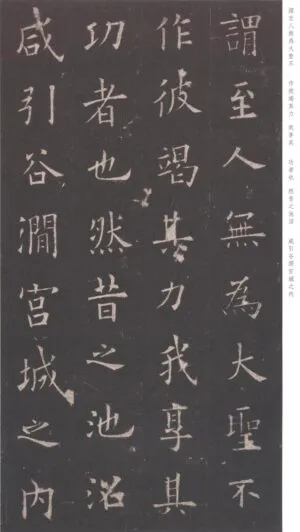 謂至人無為大聖不 作彼竭其力 我享其 功者也 然昔之池沼 咸引谷澗宮城之內
謂至人無為大聖不
作彼竭其力我享其
功者也然昔之池沼
咸引谷澗宮城之內